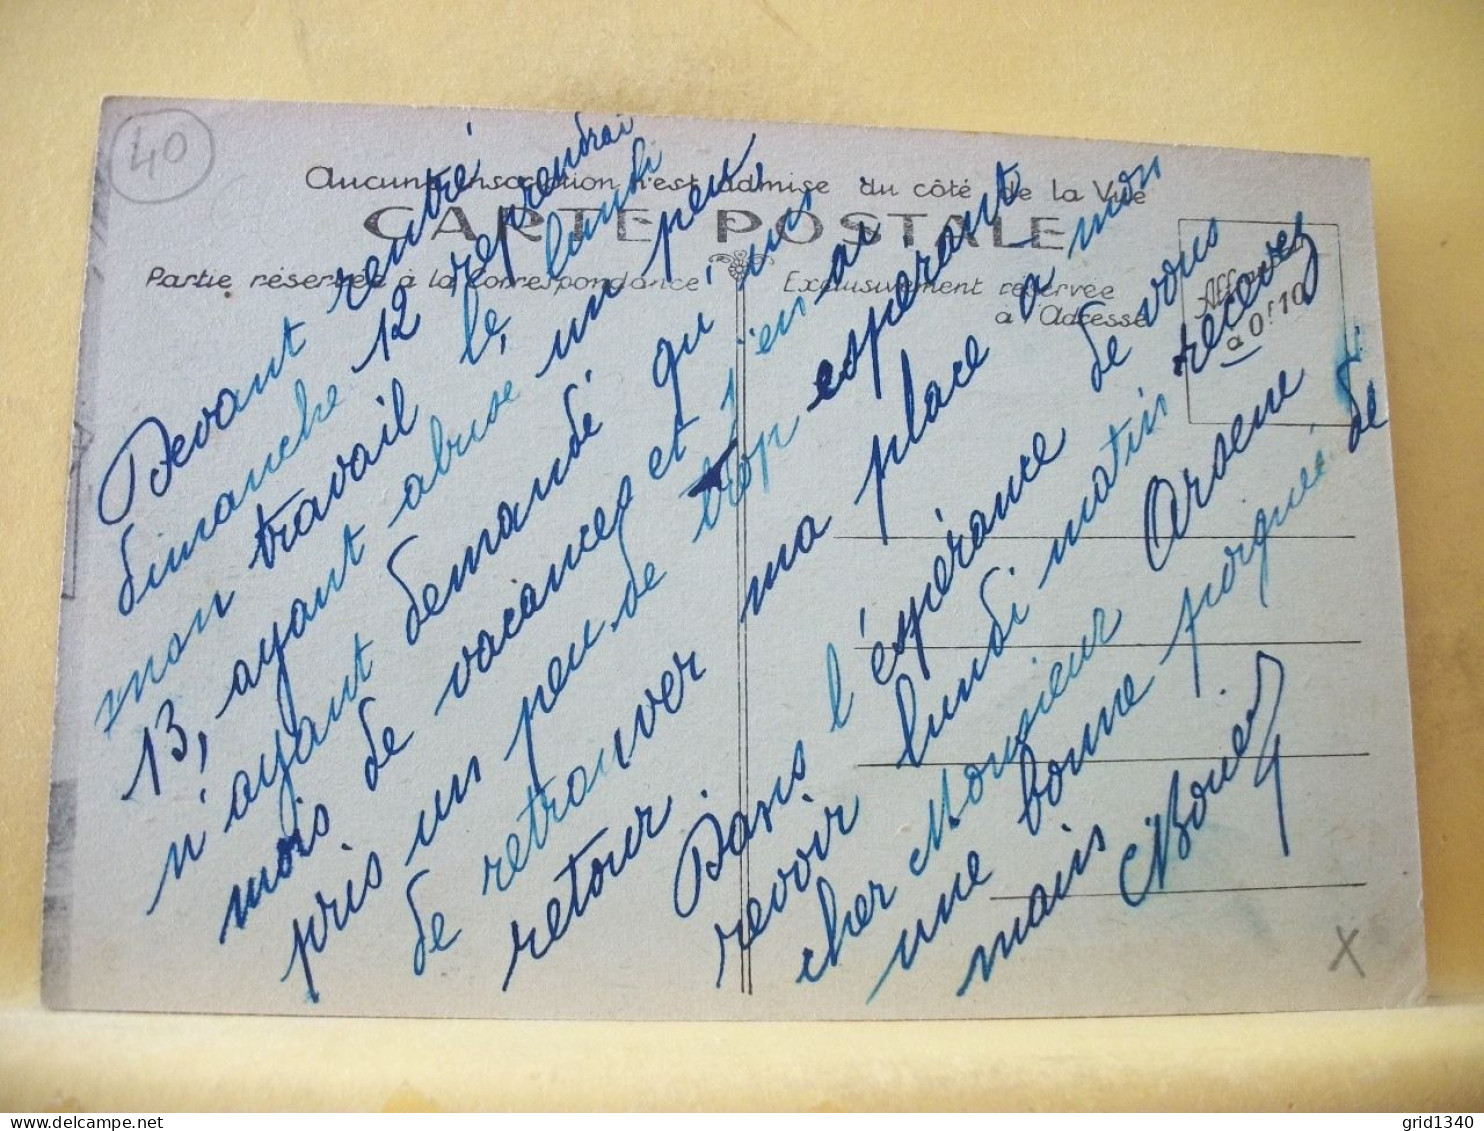 40
Aucune inscription n'est admise du côté de la Vue
CARTE POSTALE
Partie réservée à la Correspondance
Exclusivement réservée
à l'Adresse
Affranchir
à 0f10
Devant rentré
dimanche 12 reprendrai
mon travail le, lundi
13, ayant abuse un peu,
n'ayant demandé qu'une
mois de vacances et j'en ai
pris un peu de trop esperant
de retrouver ma place a mon
retour.
Dans l'éspérance de vous
revoir lundi matin recevez
cher Monsieur Arsene
une bonne poignée de
main
X
grid1340